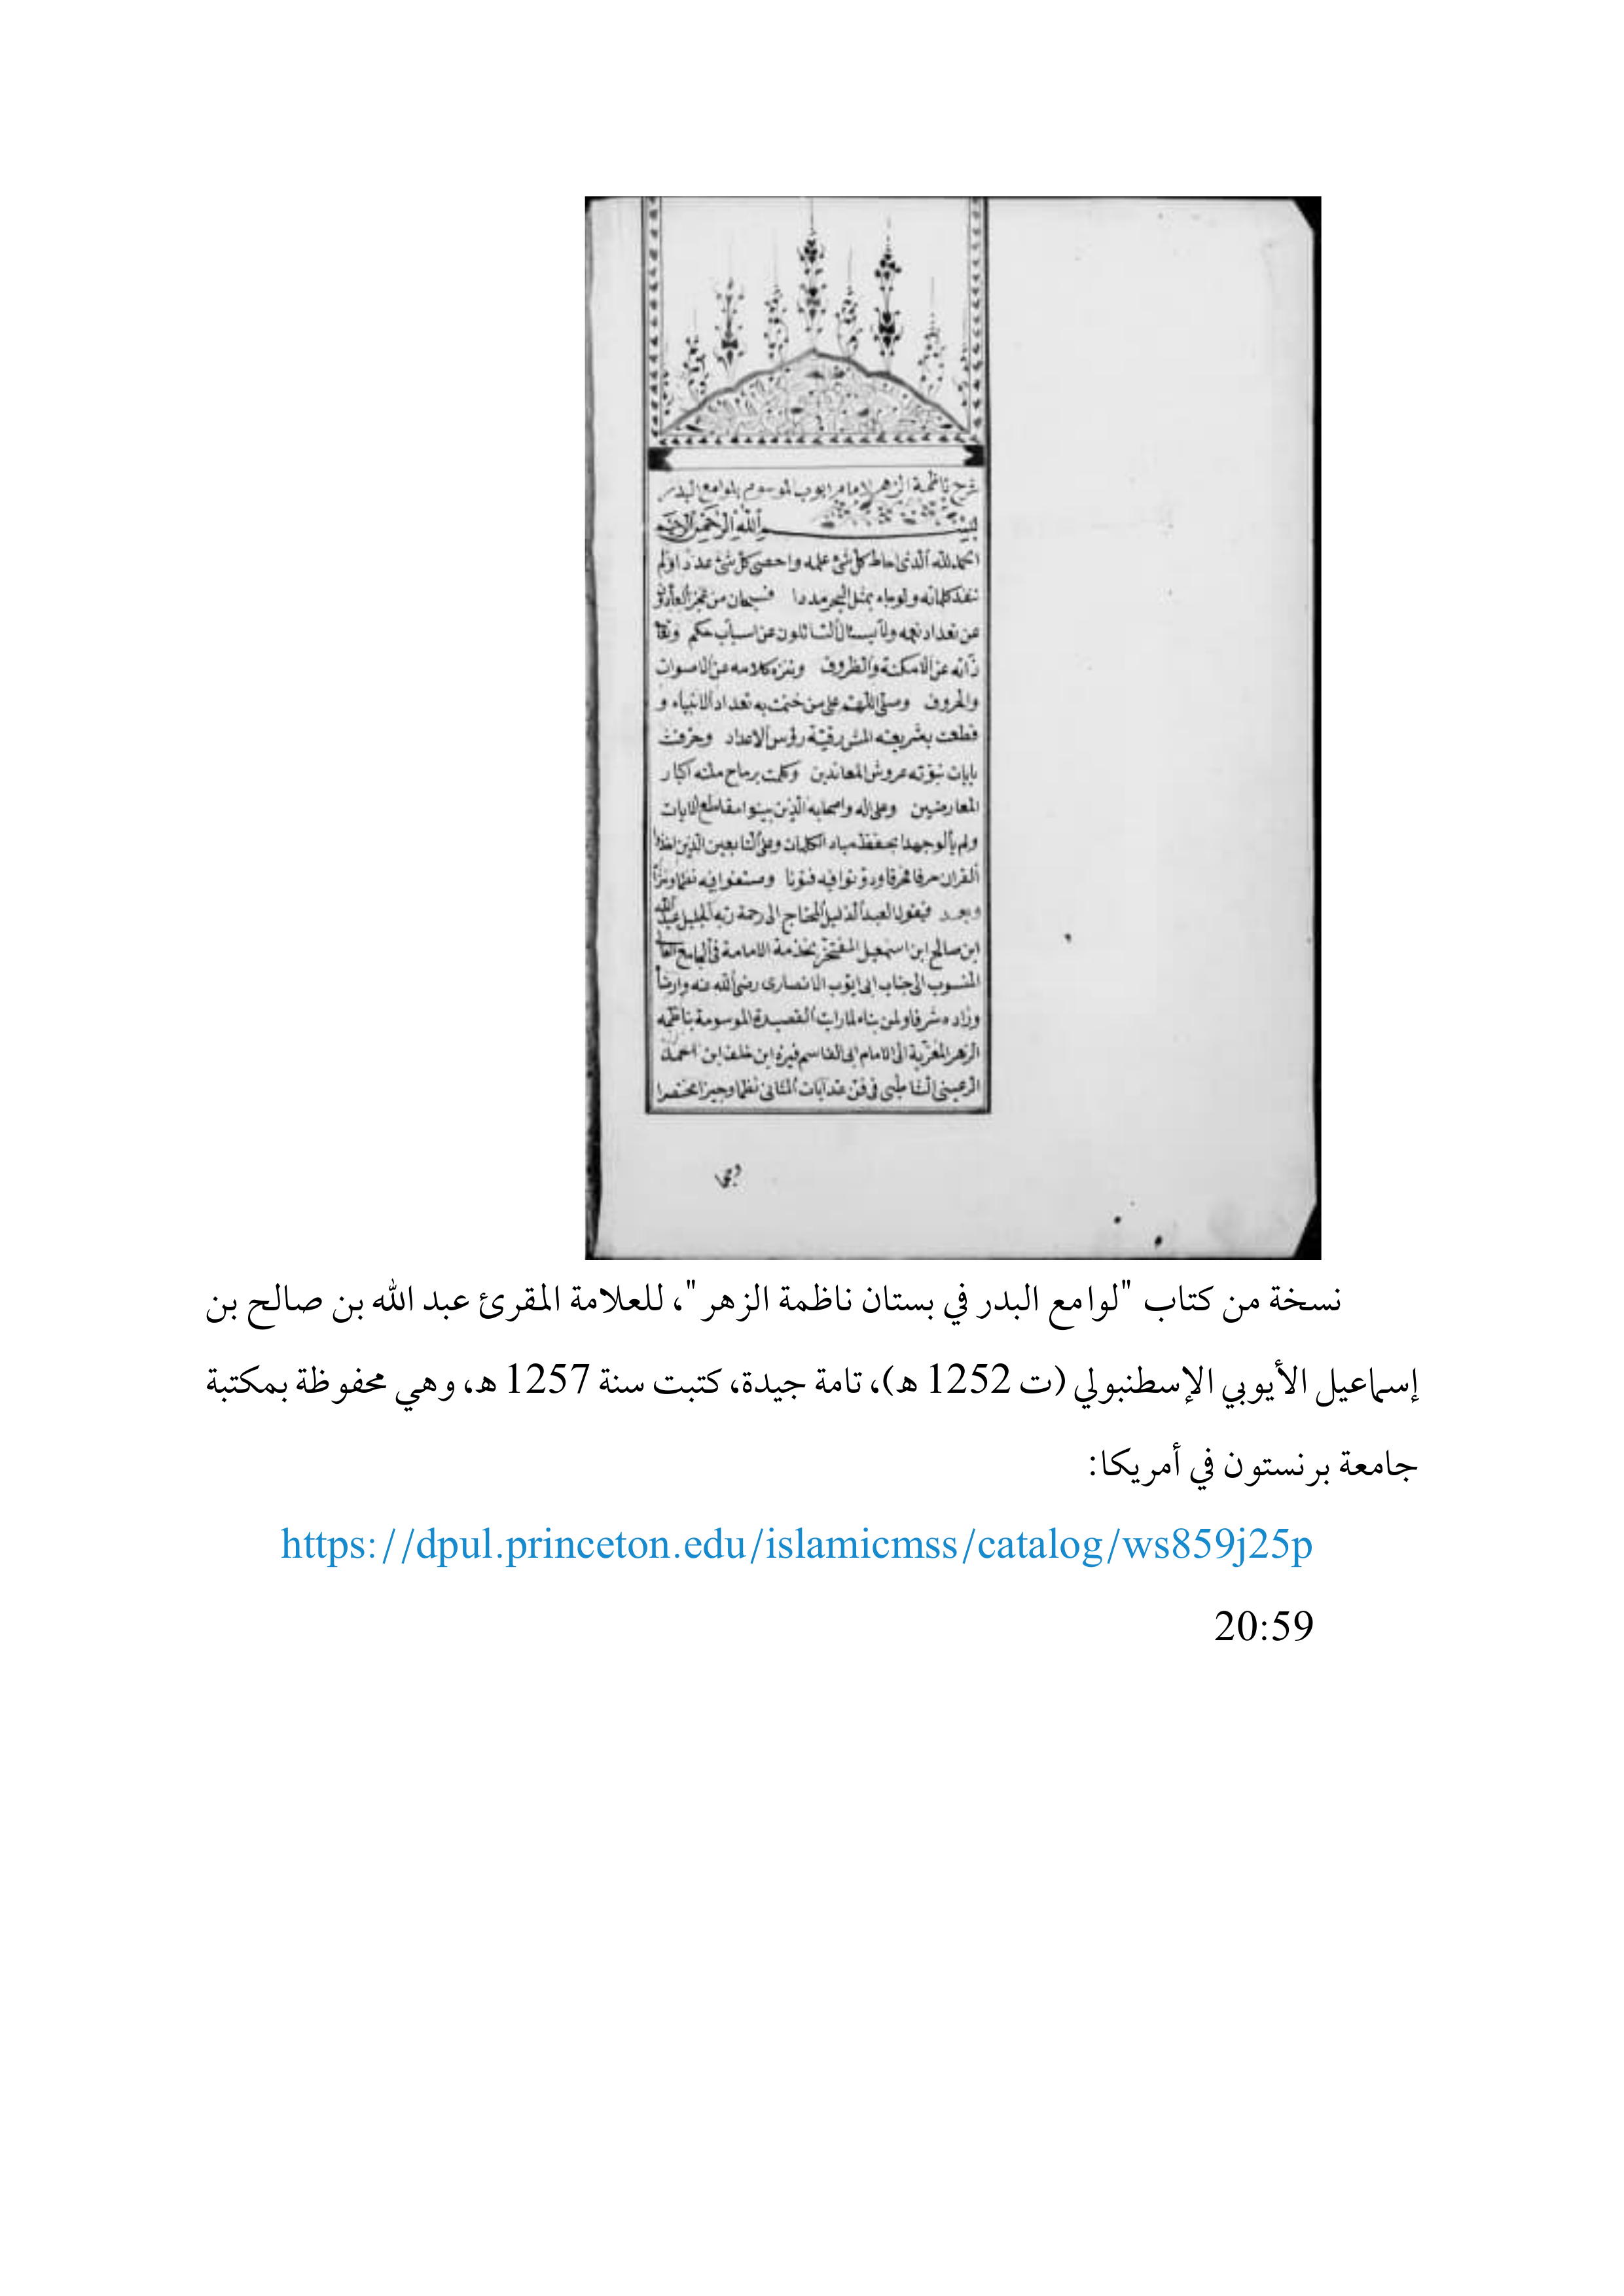 شرح ناظمة الزهر لامام ايوب الموسوم بلوامع البدر
بسم الله الرحمن الرحيم
الحمد لله الذى احاط كل شئ علمه واحصى كل شئ عددا ولم
تنفد كلماته ولو جاء بمثل البحر مددا فسبحان من عجز العادّون
عن تعداد نعمه ولا يسئال السائلون عن اسباب حكم
ذاته عن الامكنة والظروف وتنزه كلامه عن الاصوات
والحروف وصلى اللهم على من ختمت به تعداد الانبياء و
قطعت بشريعته المشرقية رؤس الاعداد وخرقت
بايات نبوته عروش المعاندين وكلمت برماح ملته اكبار
المعارضين وعلى اله واصحابه الذين بينوا مقاطع الايات
ولم يألوا جهدا بحفظ مباد الكلمات وعلى التابعين الذين اخذوا
القران حرفا حرفا ودونوا فيه فنونا وصنفوا فيه نظما ونثرا
وبعد فيقول العبد الذليل المحتاج الى رحمة ربه الجليل عبد الله
ابن صالح ابن اسمعيل المفتخر بخدمة الامامة فى الجامع العالى
المنسوب الى جناب ابى ايوب الانصارى رضى الله عنه وارضاه
وزاده شرفا ولمن بناه لما رايت القصيدة الموسومة بناظمة
الزهر المعزية الى الامام ابى القاسم فيرة ابن خلف ابن احمد
الرعينى الشاطبى فى فن عد ايات المثانى نظما وجيزا مختصرا
نسخة من كتاب "لوامع البدر في بستان ناظمة الزهر"، للعلامة المقرئ عبد الله بن صالح بن
إسماعيل الأيوبي الإسطنبولي (ت 1252 هـ)، تامة جيدة، كتبت سنة 1257 هـ، وهي محفوظة بمكتبة
جامعة برنستون في أمريكا:
https://dpul.princeton.edu/islamicmss/catalog/ws859j25p
20:59